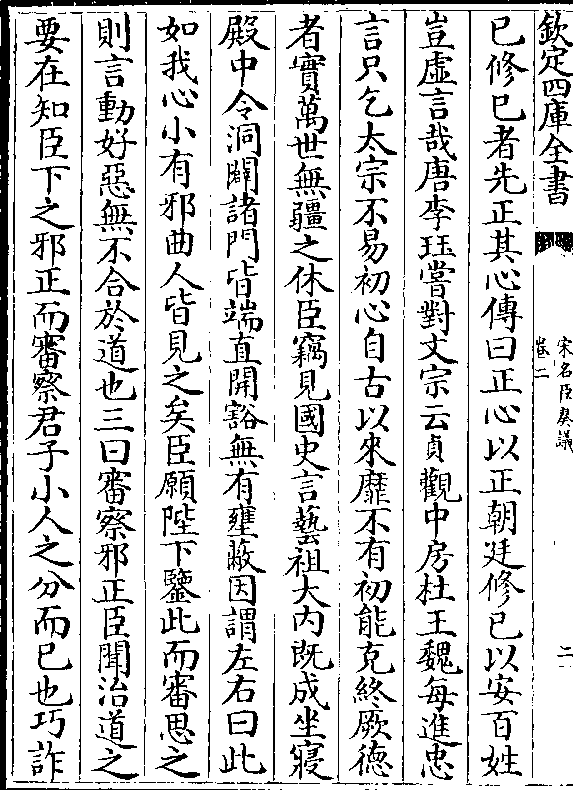 欽定四庫全書
宋名臣奏議
卷二
二
已修已者先正其心傳曰正心以正朝廷修已以安百姓
豈虛言哉唐李珏嘗對文宗云貞觀中房杜王魏每進忠
言只乞太宗不易初心自古以來靡不有初能克終厥德
者實萬世無疆之休臣竊見國史言藝祖大内既成坐寢
殿中令洞闢諸門皆端直開豁無有壅蔽因謂左右曰此
如我心小有邪曲人皆見之矣臣願陛下鑒此而審思之
則言動好惡無不合於道也三曰審察邪正臣聞治道之
要在知臣下之邪正而審察君子小人之分而已也巧詐